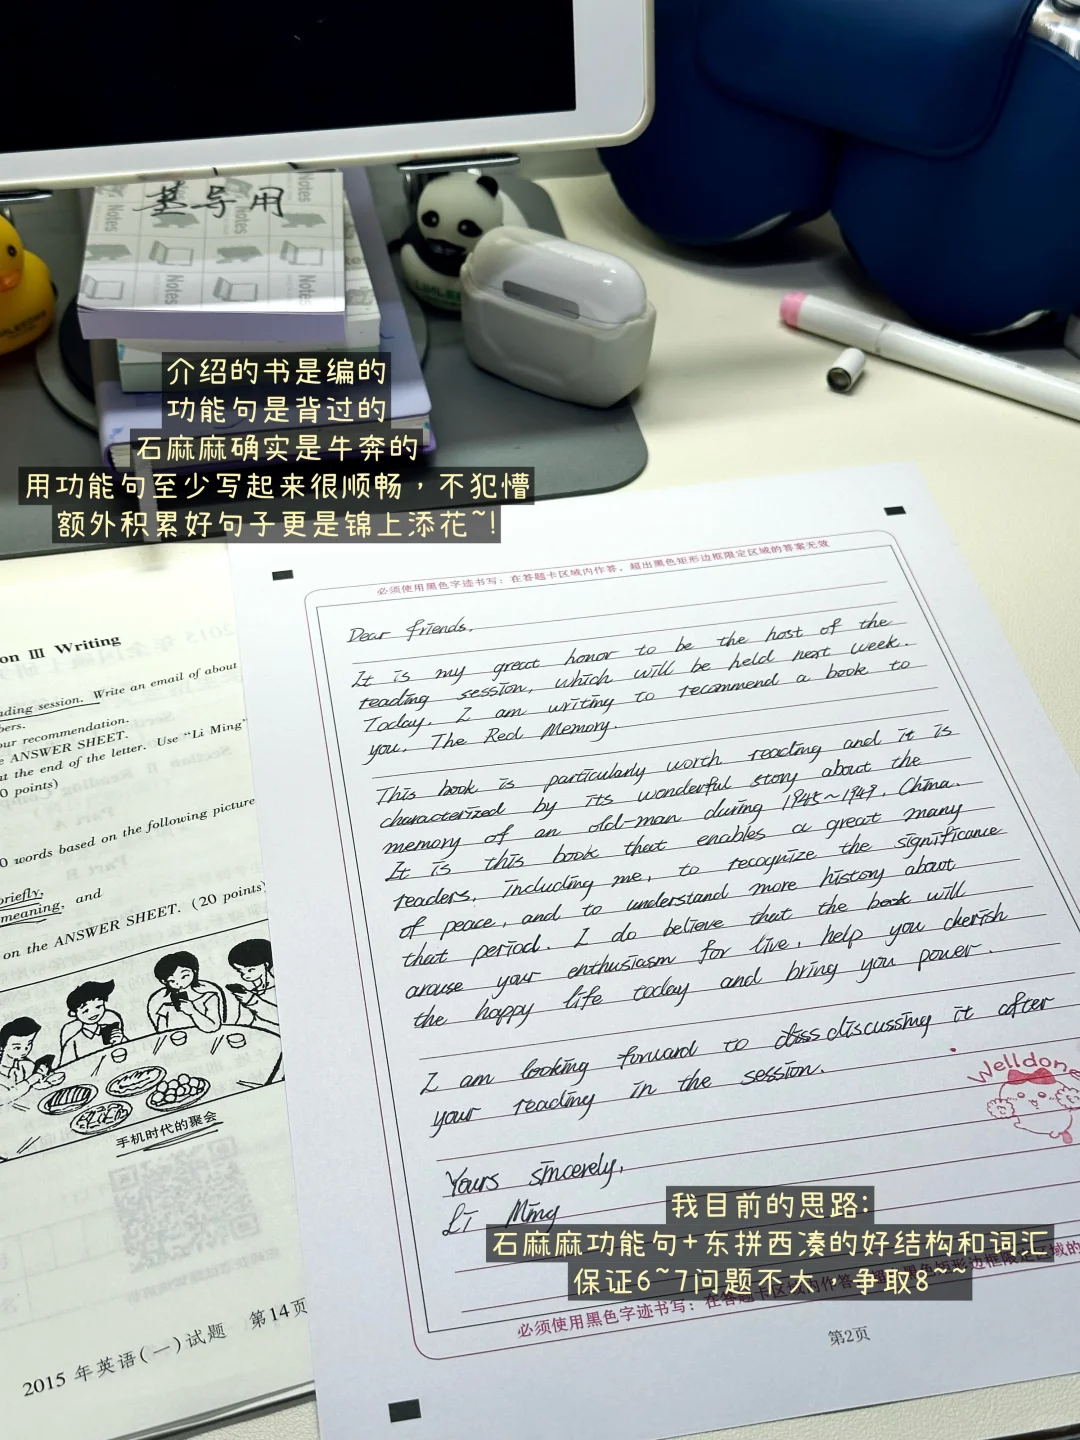 基导用
Notes
Notes
Notes
Notes
Notes
介绍的书是编的
功能句是背过的
石麻麻确实是牛奔的
用功能句至少写起来很顺畅，不犯懵
额外积累好句子更是锦上添花~!
on III Writing
ding session. Write an email of about
bers.
our recommendation.
e ANSWER SHEET.
at the end of the letter. Use "Li Ming"
0 points)
0 words based on the following picture
briefly,
meaning, and
on the ANSWER SHEET. (20 points)
手机时代的聚会
2015 年英语(一)试题 第14页
必须使用黑色字迹书写：在答题卡区域内作答，超出黑色矩形边框限定区域的答案无效
Dear friends,
It is my great honor to be the host of the
reading session, which will be held next week.
Today, I am writing to recommend a book to
you, The Red Memory.
This book is particularly worth reading and it is
characterized by its wonderful story about the
memory of an old-man during 1945~1949, China.
It is this book that enables a great many
readers, including me, to recognize the significance
of peace, and to understand more history about
that period. I do believe that the book will
arouse your enthusiasm for live, help you cherish
the happy life today and bring you power.
I am looking forward to diss discussing it after
your reading in the session.
Welldone
Yours sincerely,
Li Ming
我目前的思路:
石麻麻功能句+东拼西凑的好结构和词汇
保证6~7问题不大，争取8~~
必须使用黑色字迹书写：在答题卡区域内作答，超出黑色矩形边框限定区域的
第2页